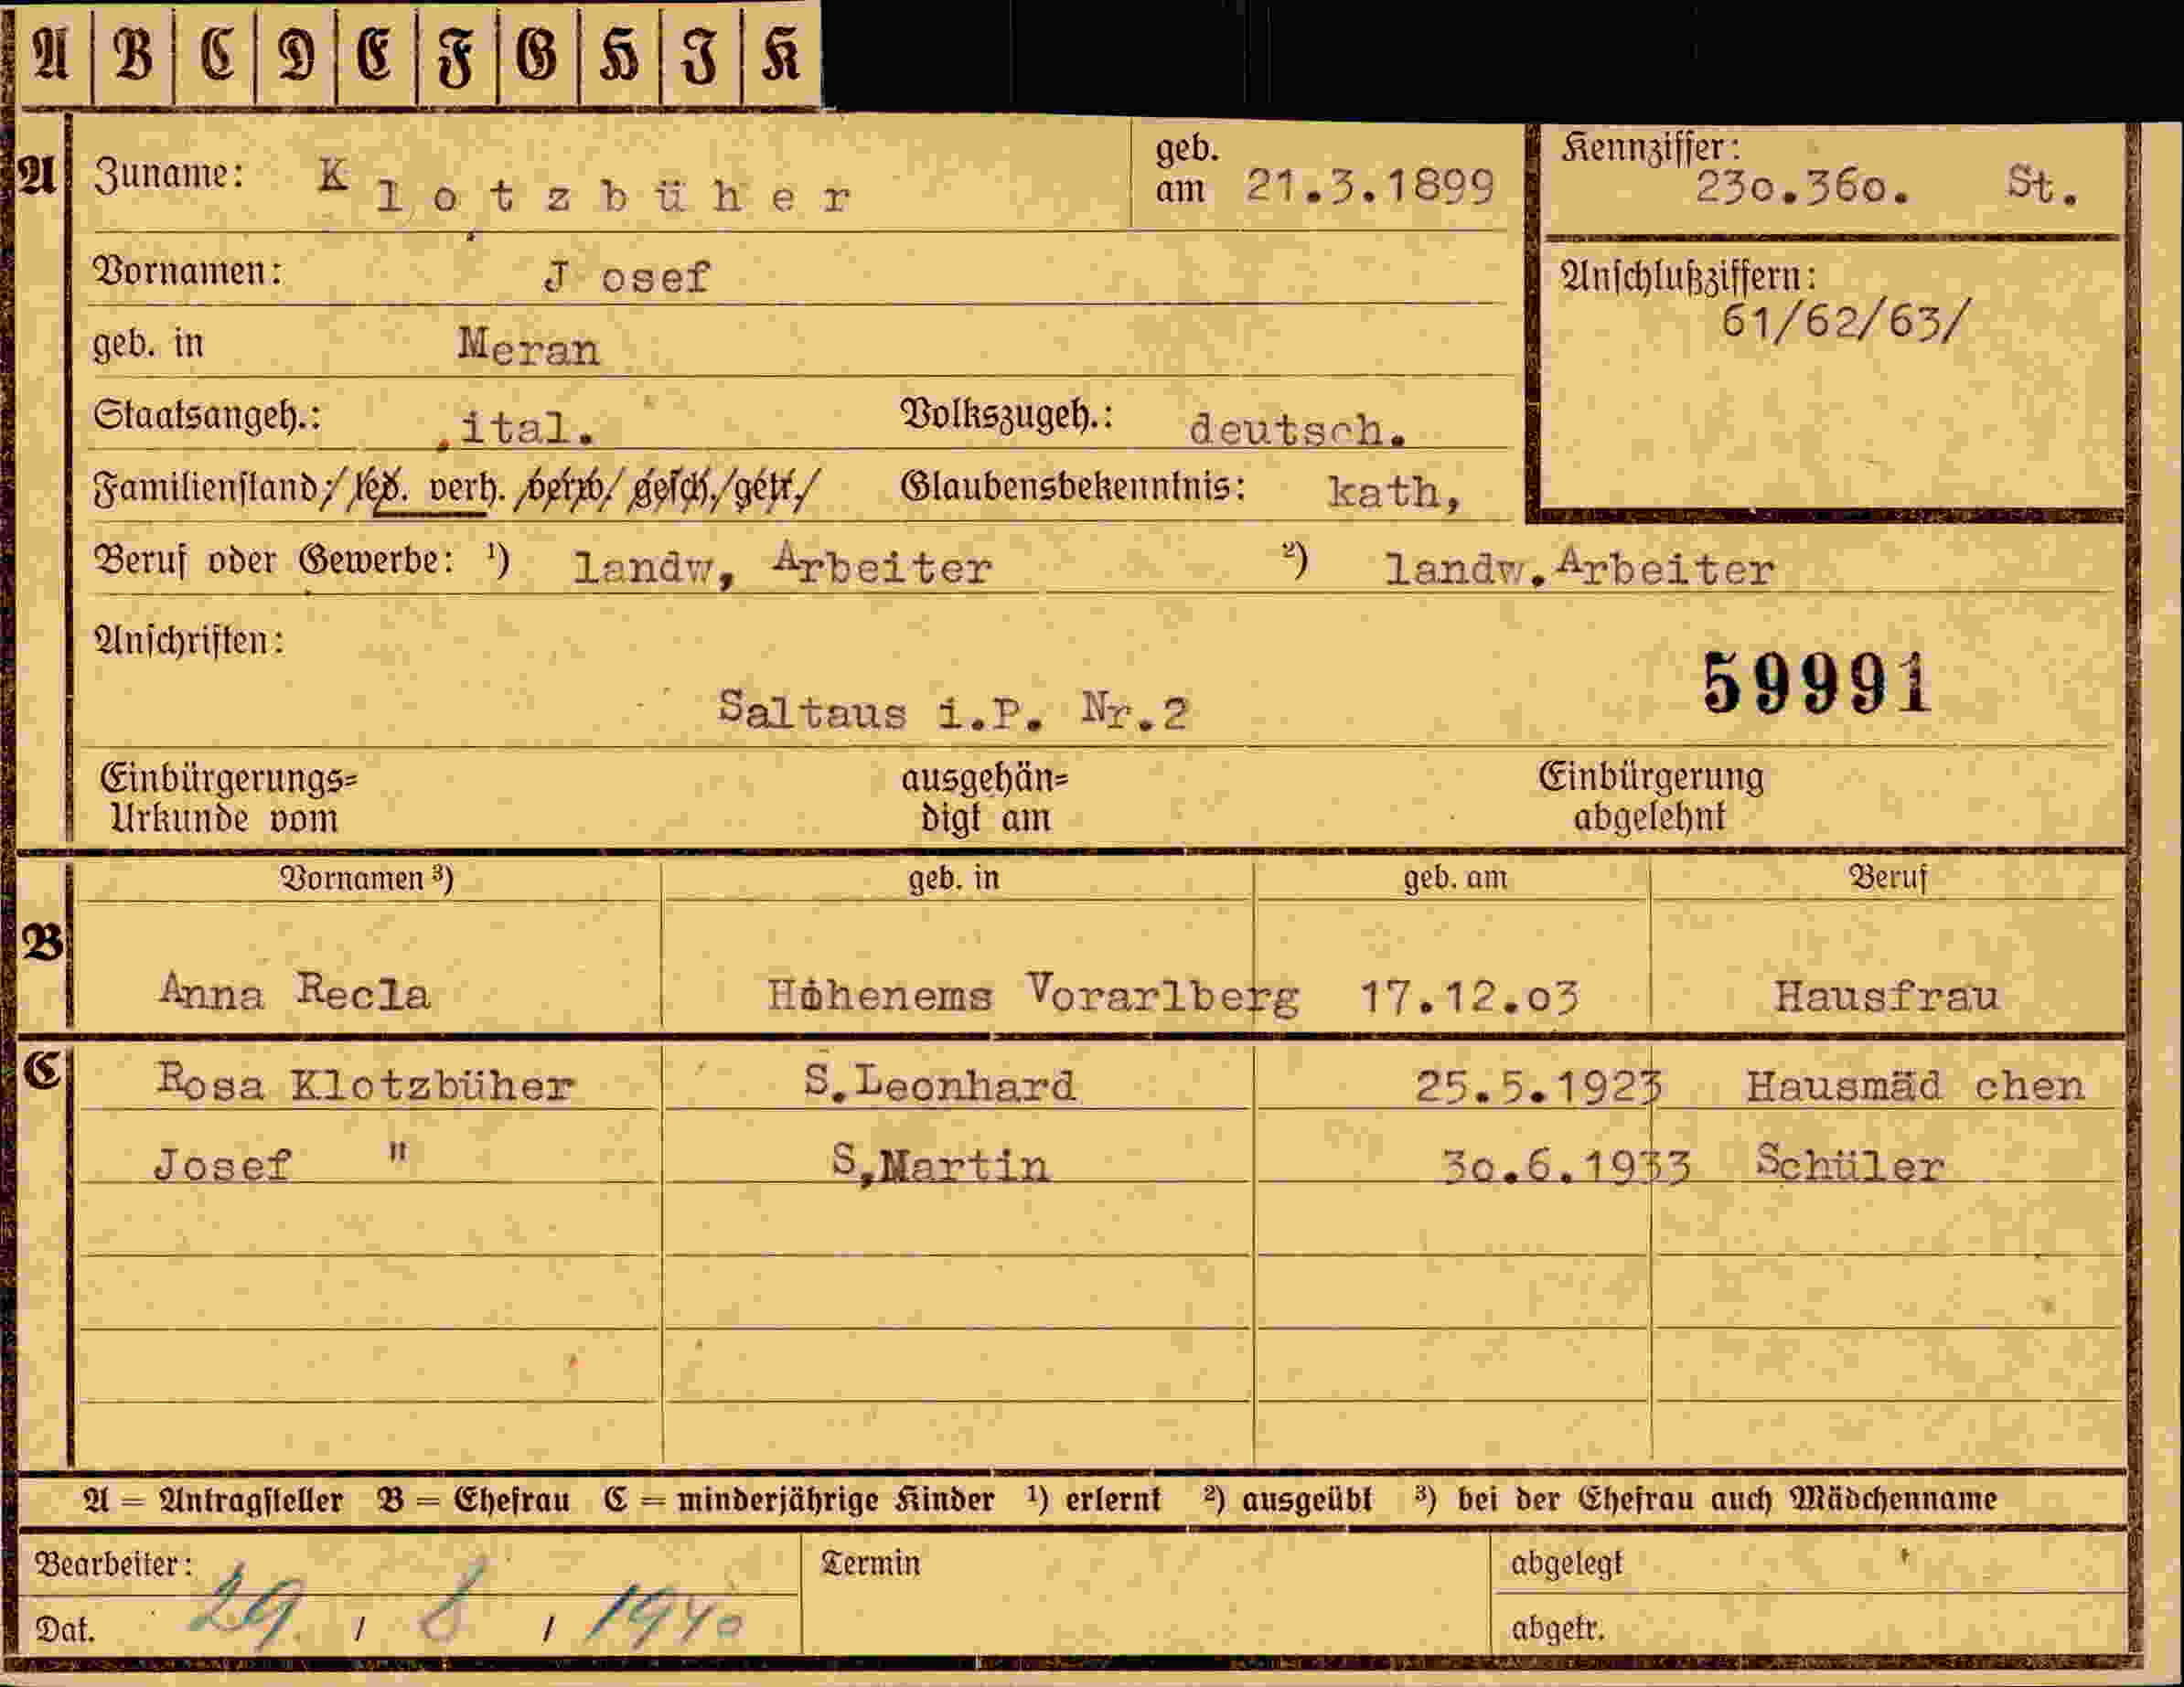 A B C D E F G H I K
A Zuname: Klotzbüher geb. am 21.3.1899 Kennziffer: 230.360. St.
Vornamen: J osef Anschlußziffern:
61/62/63/
geb. in Meran
Staatsangeh.: ital. Volkszugeh.: deutsch.
Familienstand: led. verh. verw. gesch. getr. Glaubensbekenntnis: kath,
Beruf oder Gewerbe: ¹) landw, Arbeiter ²) landw. Arbeiter
Anschriften:
59991
Saltaus i.P. Nr.2
Einbürgerungs= ausgehän= Einbürgerung
Urkunde vom digt am abgelehnt
Vornamen ³) geb. in geb. am Beruf
B Anna Recla Hohenems Vorarlberg 17.12.03 Hausfrau
C Rosa Klotzbüher S.Leonhard 25.5.1923 Hausmäd chen
Josef " S,Martin 30.6.1933 Schüler
A = Antragsteller B = Ehefrau C = minderjährige Kinder ¹) erlernt ²) ausgeübt ³) bei der Ehefrau auch Mädchenname
Bearbeiter: Termin abgelegt
Dat. 29. / 8 / 1940 abgetr.